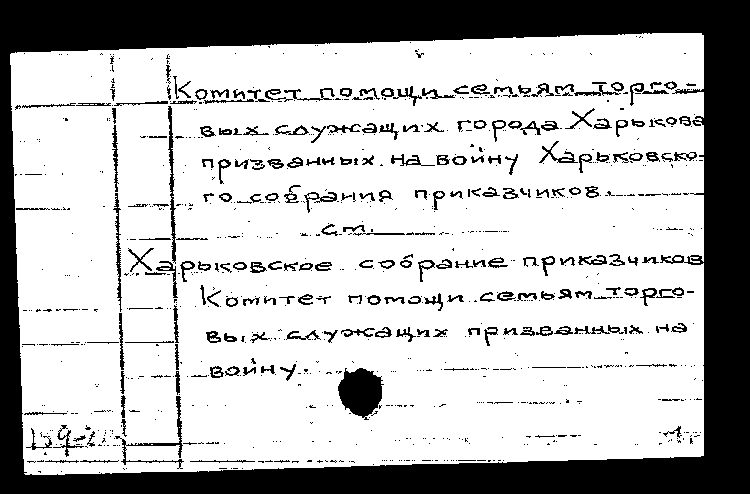 Комитет помощи семьям торго-
вых служащих города Харькова
призванных на войну Харьковско-
го собрания приказчиков.
см.
Харьковское собрание приказчиков
Комитет помощи семьям торго-
вых служащих призванных на
войну.